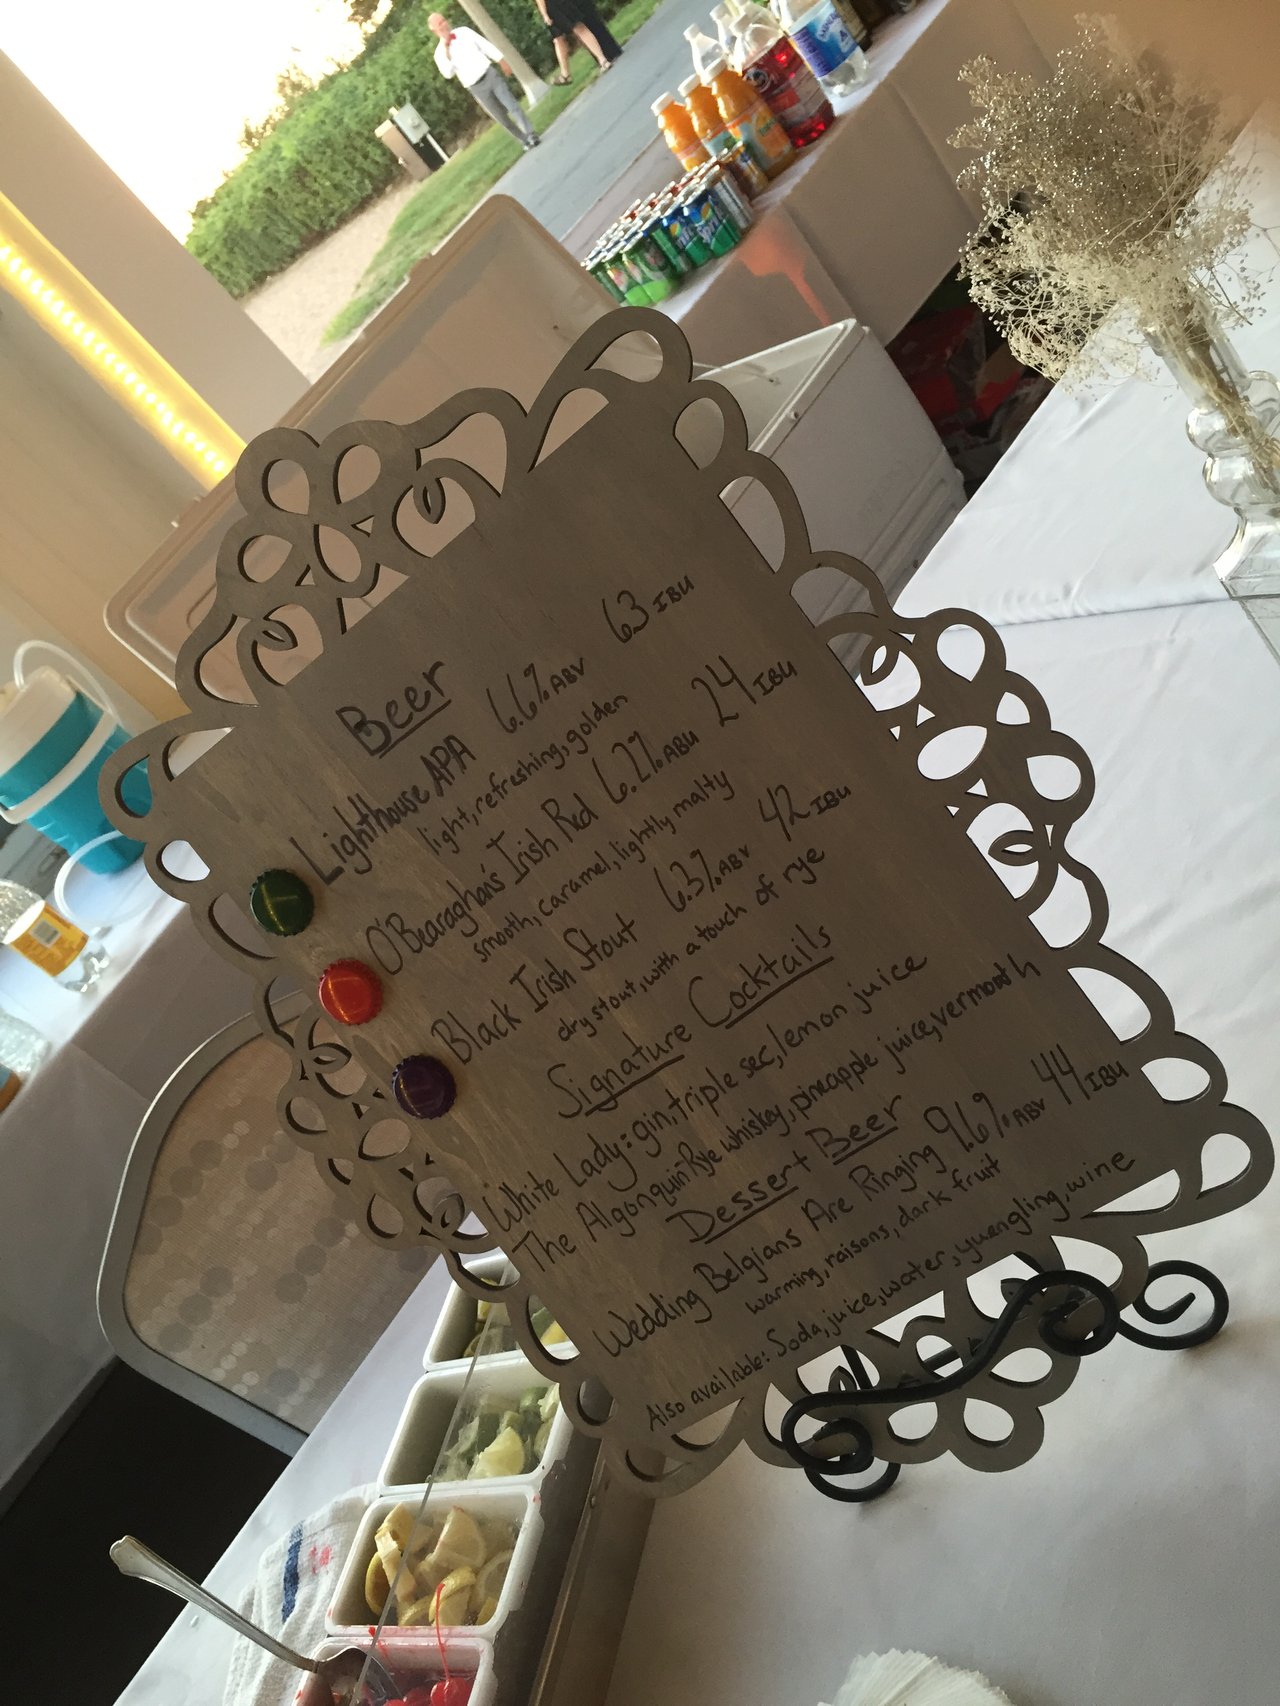 Beer
Lighthouse APA 6.6% ABV 63 IBU
light, refreshing, golden
O'Bearaghan's Irish Red 6.2% ABV 24 IBU
smooth, caramel, lightly malty
Black Irish Stout 6.3% ABV 42 IBU
dry stout, with a touch of rye
Signature Cocktails
White Lady: gin, triple sec, lemon juice
The Algonquin-Rye whiskey, pineapple juice, vermouth
Dessert Beer
Wedding Belgians Are Ringing 9.6% ABV 44 IBU
warming, raisons, dark fruit
Also available: Soda, juice, water, yuengling, wine
Sprite